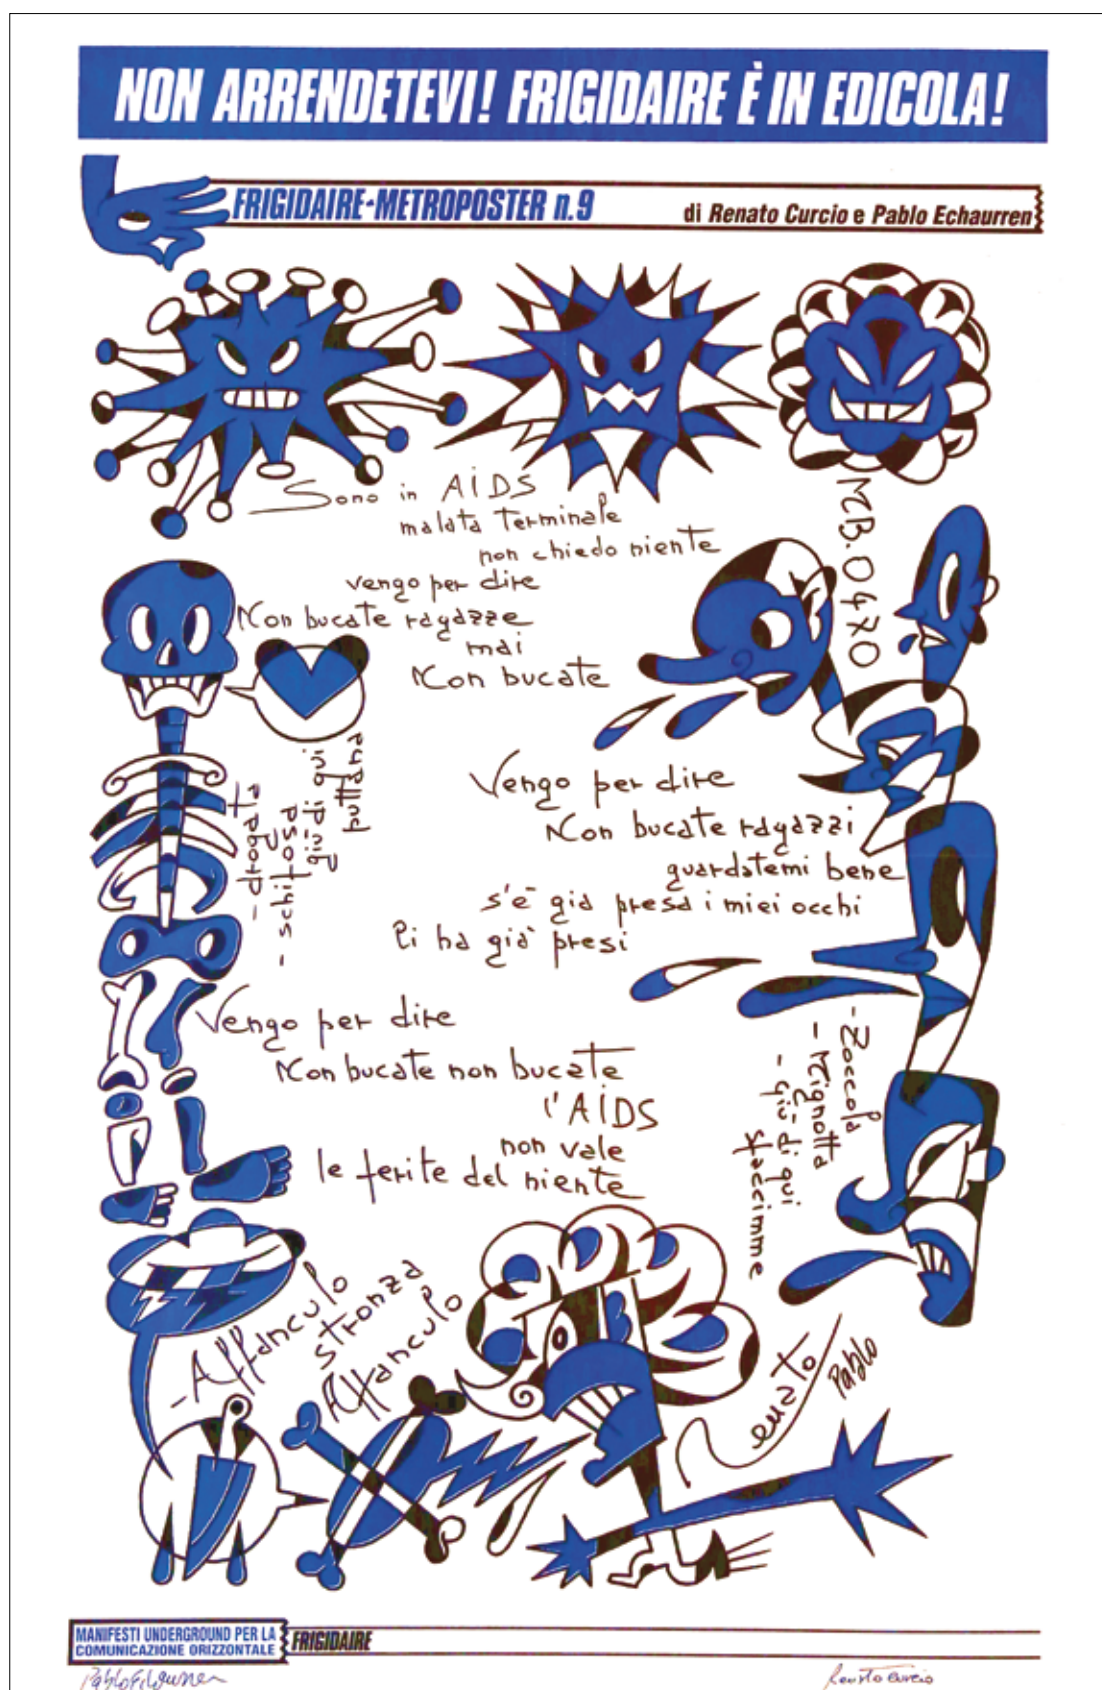 NON ARRENDETEVI! FRIGIDAIRE È IN EDICOLA!
FRIGIDAIRE-METROPOSTER n.9
di Renato Curcio e Pablo Echaurren
Sono in AIDS
malata terminale
non chiedo niente
vengo per dire
Non bucate ragazze
mai
Non bucate
MB.0470
- drogata
- schifosa
giù di qui
puttana
Vengo per dire
Non bucate ragazzi
guardatemi bene
s'è già presa i miei occhi
li ha già presi
Vengo per dire
Non bucate non bucate
l'AIDS
non vale
le ferite del niente
- Zoccola
- Mignotta
- giù di qui
staccimme
- Affanculo
stronza
Affanculo
Renato
Pablo
MANIFESTI UNDERGROUND PER LA
COMUNICAZIONE ORIZZONTALE
FRIGIDAIRE
Pablo Echaurren
Renato Curcio